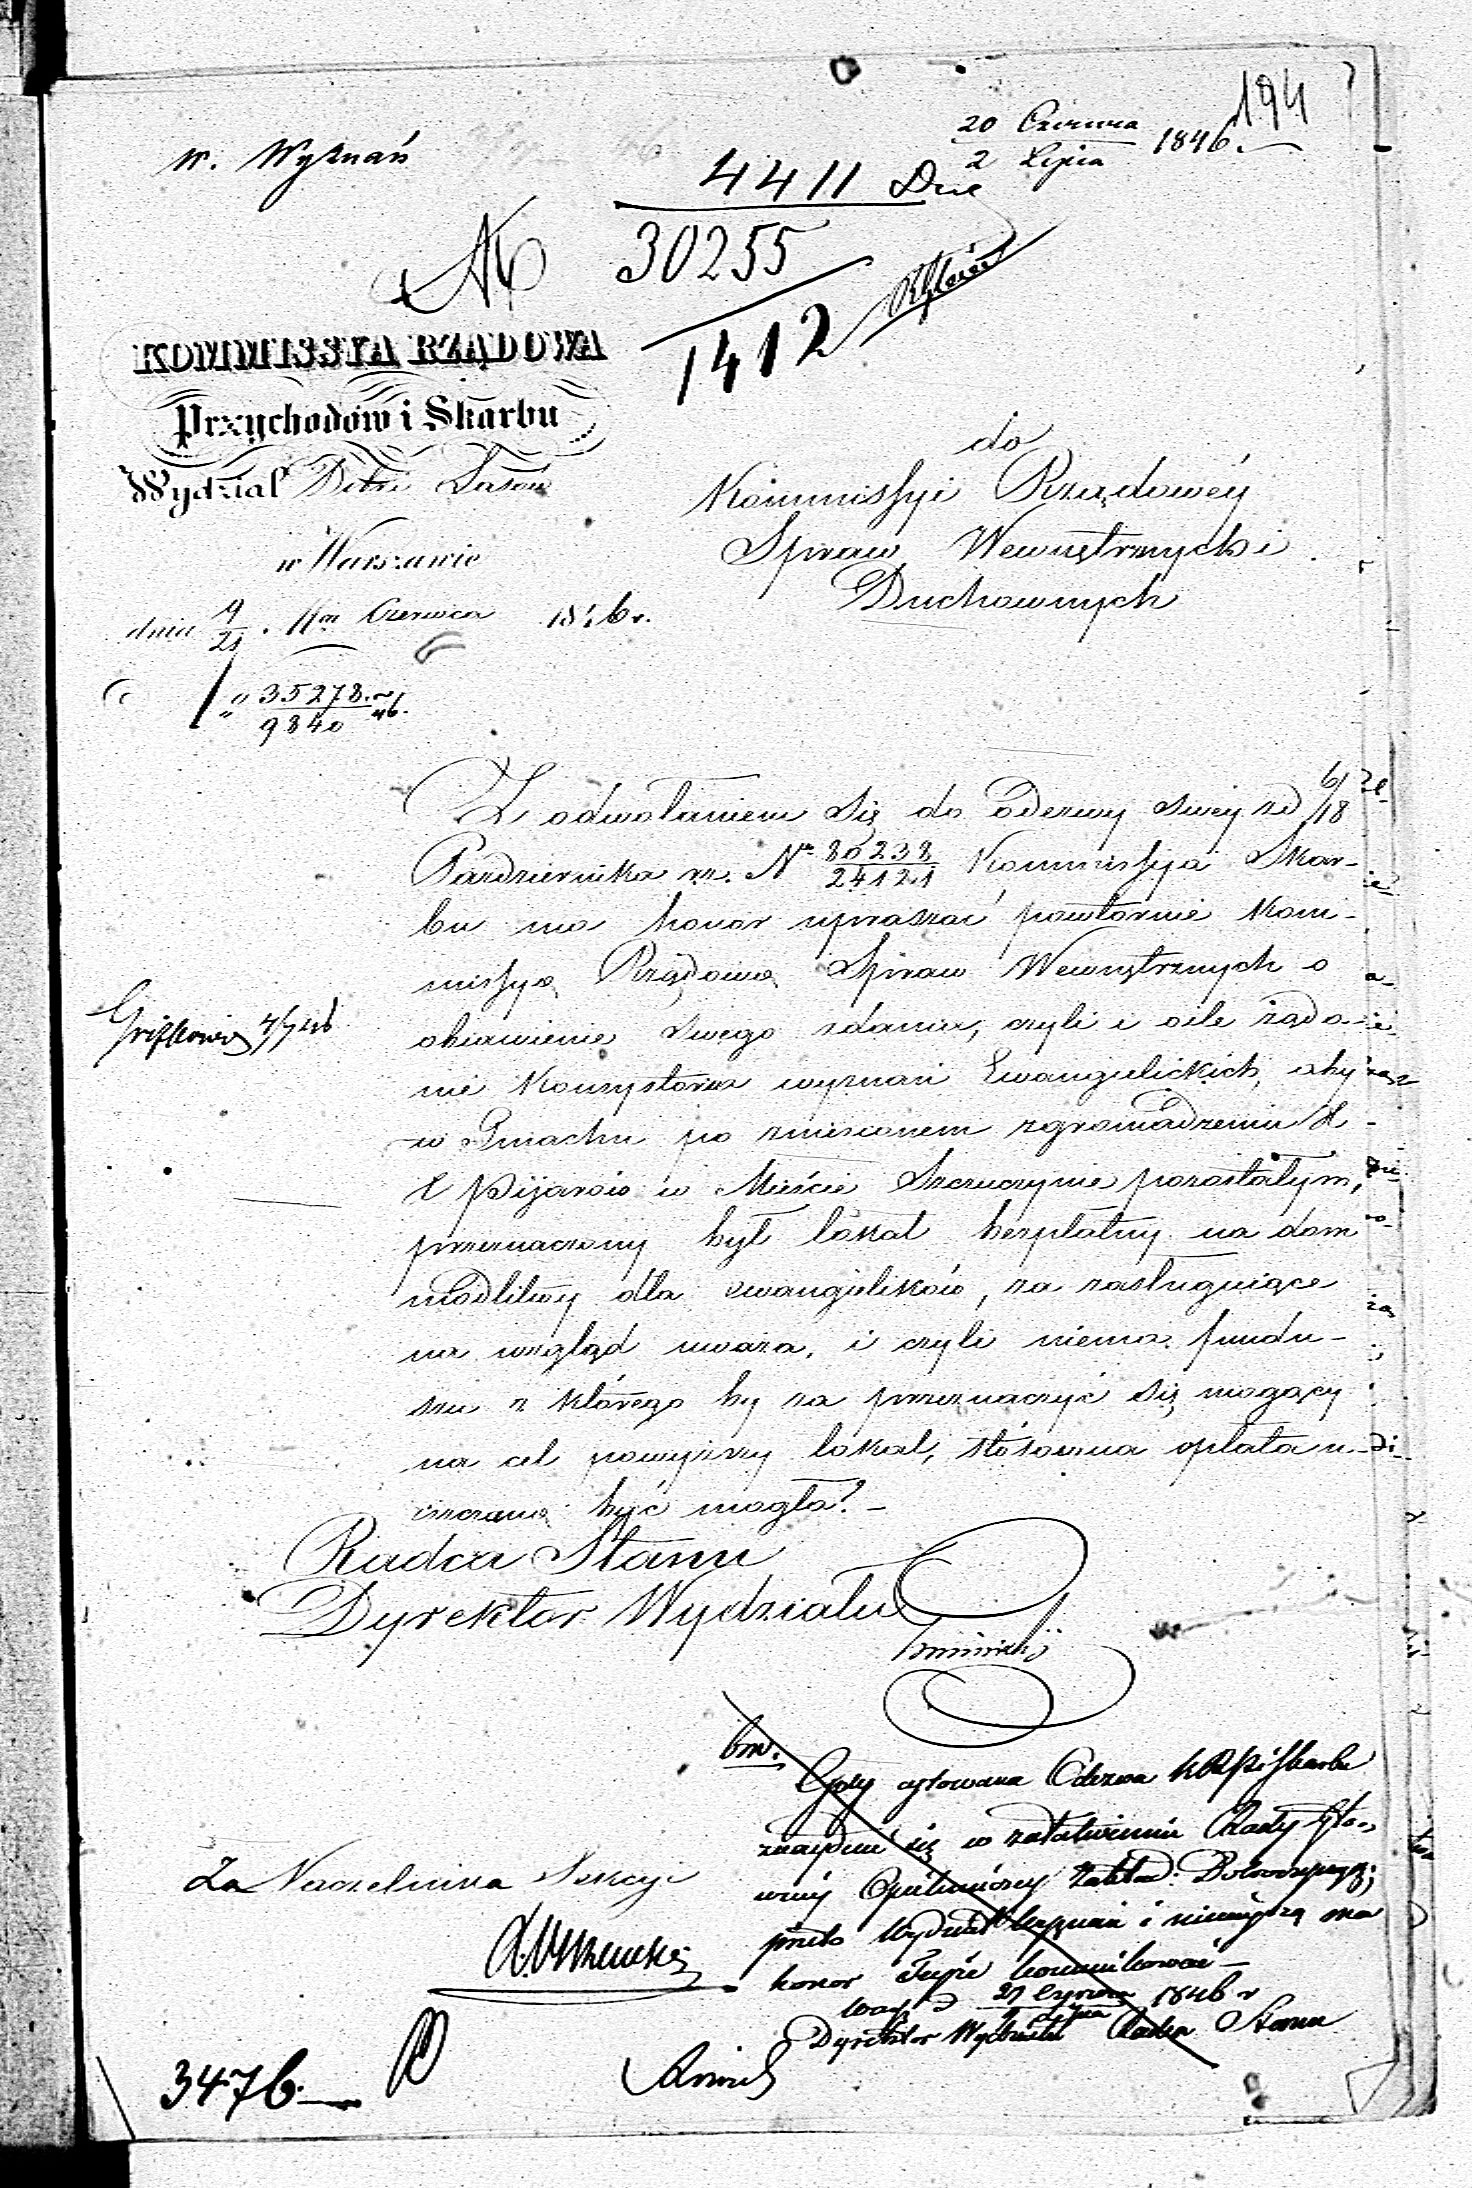 194
20 Czerwca
2 Lipca 1846.
W. Wyznań
4411 Dne
30255
1412
KOMMISSYA RZĄDOWA
Przychodów i Skarbu
Wydział Dóbr i Lasów
w Warszawie
dnia 9/21 Czerwca 1846 r.
35278
9840 46.
do
Kommissyi Rządowéy
Spraw Wewnętrznych i
Duchownych
Z odwołaniem się do odezwy swey zd 6/18
Pazdziernika rz. Nr 80238/24121 Kommissyia Skar-
bu ma honor upraszać powtórnie Kom-
missyą Rządową Spraw Wewnętrznych o
obiawienie swego zdania, czyli i o ile żąda-
nie Konsystorza wyznań Ewangielickich, aby
w Gmachu po zniesionem zgromadzeniu X
X Pijarów w Mieście Szczuczynie pozostałym,
przeznaczony był lokal bezpłatny na dom
modlitwy dla ewangielików, za zasługuiące
na wzgląd uważa, i czyli niema fundu-
szu z którego by za przeznaczyć się mogący
na cel powyższy lokal, stósowna opłata u-
iszczaną być mogła? -
Radca Stanu
Dyrektor Wydziału
4/7 46
bm.
Gdy cytowana Odezwa KRPiSkarbu
znajduie się w załatwieniu Rady Głó-
wnéy Opiekuńczey Zakład: Dobroczynn;
przeto Wydział Wyznań i niniejszą ma
honor Jeyże kommunikować -
Warsz d 29 Czerwca 1846 r
Dyrektor Wydziału Radca Stanu
Za Naczelnika Sekcyi
3476.